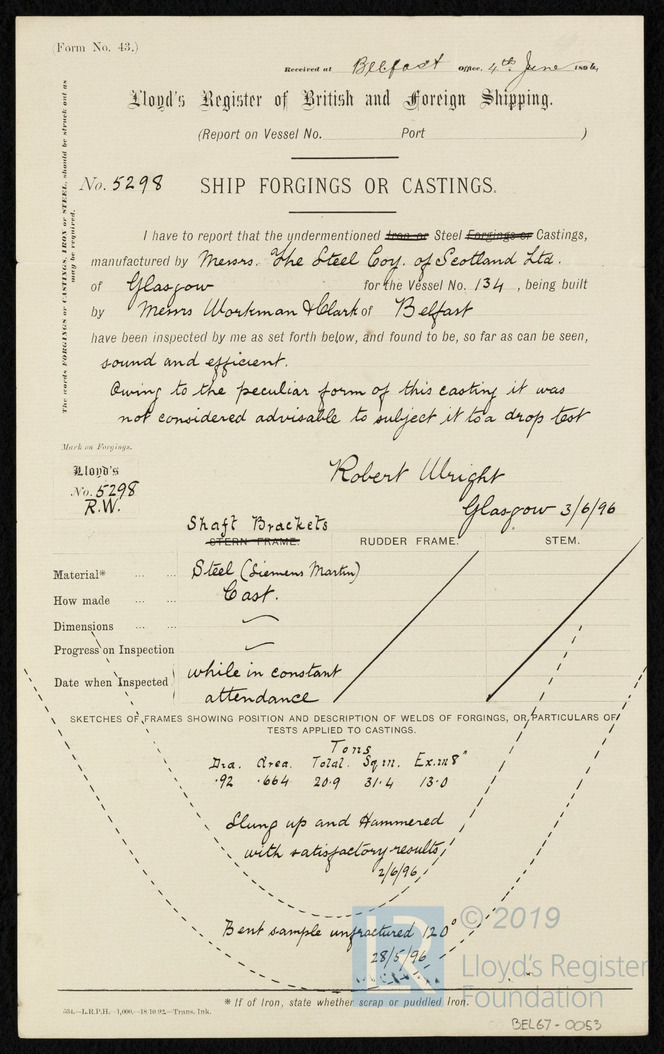 (Form No. 43.)
Received at Belfast Office, 4th June 1896,
Lloyd's Register of British and Foreign Shipping.
(Report on Vessel No. Port )
No. 5298 SHIP FORGINGS OR CASTINGS.
The words FORGINGS or CASTINGS, IRON or STEEL, should be struck out as
may be required.
I have to report that the undermentioned Iron or Steel Forgings or Castings,
manufactured by Messrs. The Steel Coy. of Scotland Ltd.
of Glasgow for the Vessel No. 134, being built
by Messrs Workman & Clark of Belfast
have been inspected by me as set forth below, and found to be, so far as can be seen,
sound and efficient.
Owing to the peculiar form of this casting it was
not considered advisable to subject it to a drop test
Mark on Forgings.
Lloyd's
No. 5298
R.W.
Robert Wright
Glasgow 3/6/96
Shaft Brackets
STERN FRAME. RUDDER FRAME. STEM.
Material* ... ... Steel (Siemens Martin)
How made ... ... Cast.
Dimensions ... ...
Progress on Inspection
Date when Inspected while in constant
attendance
SKETCHES OF FRAMES SHOWING POSITION AND DESCRIPTION OF WELDS OF FORGINGS, OR PARTICULARS OF
TESTS APPLIED TO CASTINGS.
Tons
Dia. Area. Total. Sq in. Ex.in 8"
.92 .664 20.9 31.4 13.0
Slung up and Hammered
with satisfactory results,
2/6/96
Bent sample unfractured 120°
28/5/96
© 2019
Lloyd's Register
Foundation
* If of Iron, state whether scrap or puddled Iron.
534.—L.R.P.H.—1,000.—18.10.92.—Trans. Ink.
BEL67-0053